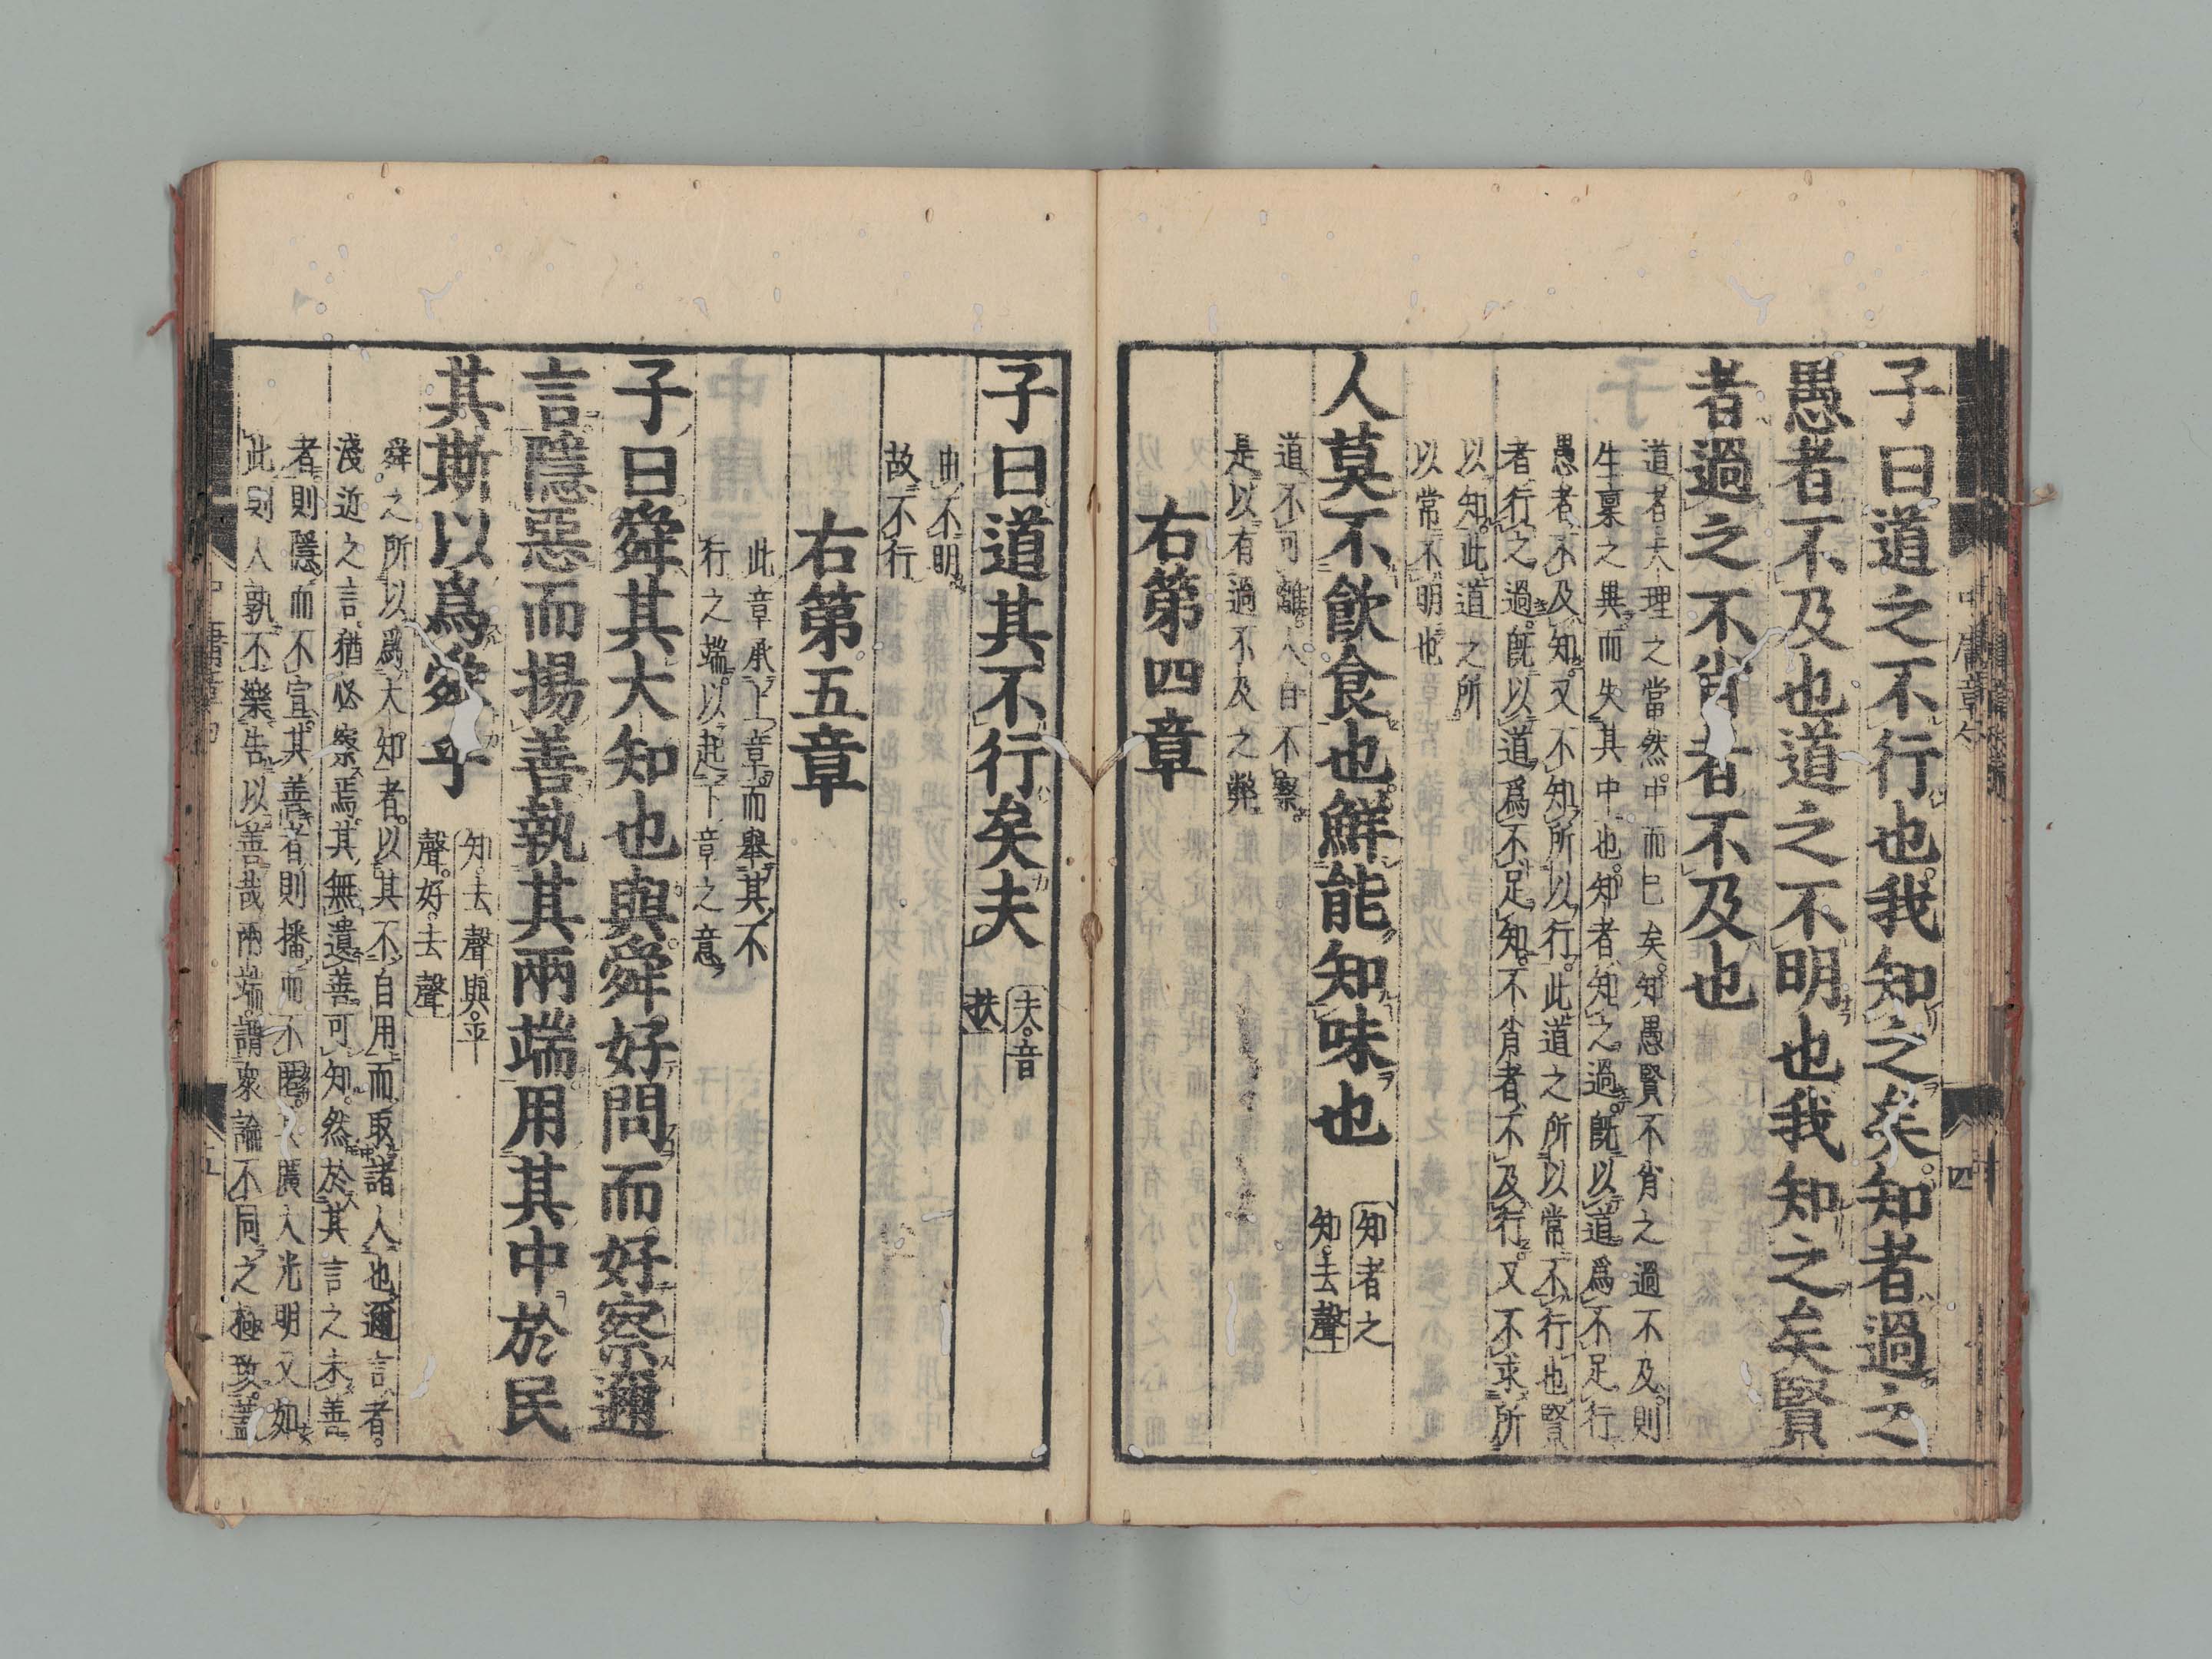 子曰道之不行也我知之矣知者過之
愚者不及也道之不明也我知之矣賢
者過之不肖者不及也
道者天理之當然中而已矣知愚賢不肖之過不及則
生稟之異而失其中也知者知之過既以道爲不足行
愚者不及知又不知所以行此道之所以常不行也賢
者行之過既以道爲不足知不肖者不及行又不求所
以知此道之所
以常不明也
人莫不飲食也鮮能知味也
知者之
知去聲
道不可離人自不察
是以有過不及之弊
右第四章
子曰道其不行矣夫
夫音
扶
由不明
故不行
右第五章
此章承上章而舉其不
行之端以起下章之意
子曰舜其大知也與舜好問而好察邇
言隱惡而揚善執其兩端用其中於民
其斯以爲舜乎
知去聲與平
聲好去聲
舜之所以爲大知者以其不自用而取諸人也邇言者
淺近之言猶必察焉其無遺善可知然於其言之未善
者則隱而不宣其善者則播而不匿其廣大光明又如
此則人孰不樂告以善哉兩端謂衆論不同之極致蓋